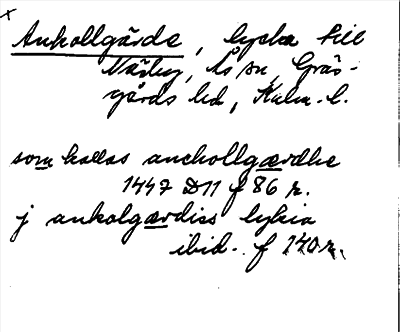 x
Ankollgärde, lycka till
Närby, Ås sn, Gräs-
gårds hd, Kalm. l.
som kallas anchollgærdhe
1447 D11 f 86 r.
j ankolgærdiss lykia
ibid. f 140 r.